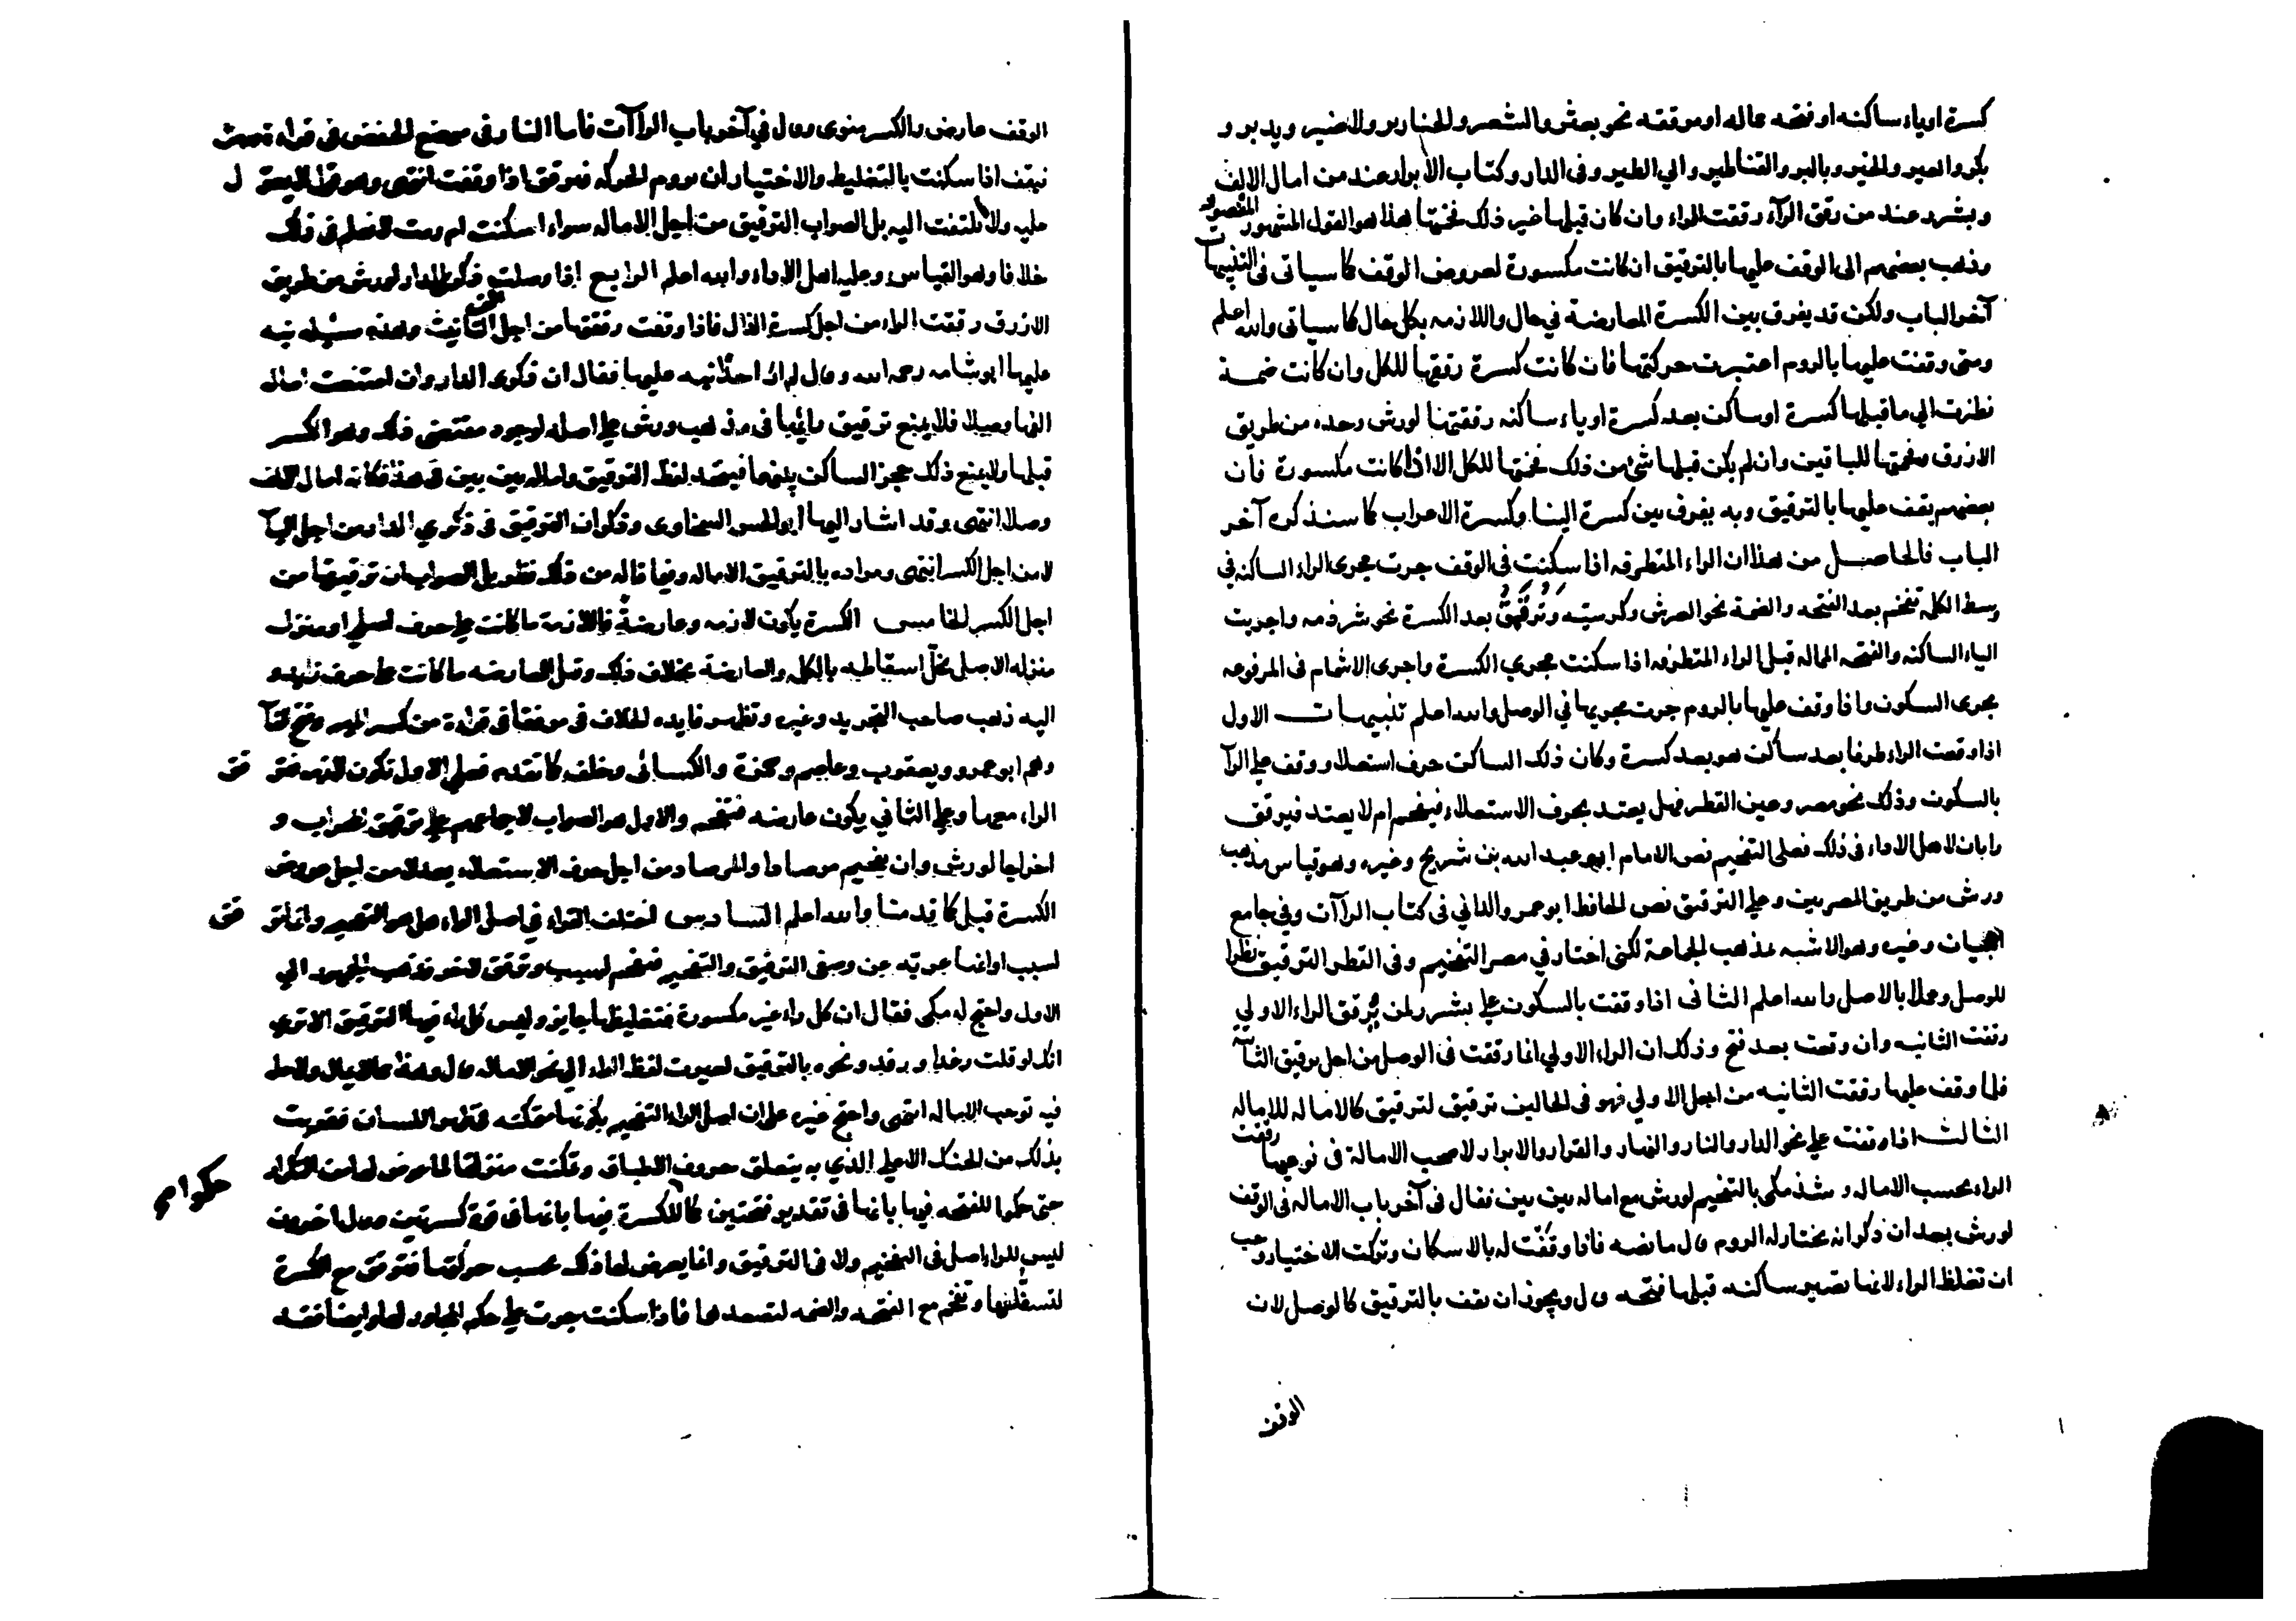 كسرة اوياء ساكنه او فتحه ماله او موققه نحو بعثر والشعر والخنازير ولا ضير ويدبر و
بكر والعير والخير وبالبر والقناطير والي الطير وفى الدار وكتاب الأبرار عند من امال الالف
وبشرر عند من رقق الرآء رققت الراء وان كان قبلها غير ذلك فخمتها هذا هو القول المشهور المنصور
وذهب بعضهم الى الوقف عليها بالترقيق ان كانت مكسورة لعروض الوقف كما سياتى فى التنبيهات
آخر الباب ولكن قد يفرق بين الكسرة العارضة في حال واللازمه بكل حال كما سياتى والله اعلم
ومتى وقفت عليها بالروم اعتبرت حركتها فان كانت كسرة رققتها للكل وان كانت ضمة
نظرت الي ما قبلها كسرة او ساكن بعد كسرة او ياء ساكنه رققتها لورش وحده من طريق
الازرق وفخمتها للباقين وان لم يكن قبلها شئ من ذلك فخمتها للكل الا اذا كانت مكسورة فان
بعضهم يقف عليها بالترقيق وبه يفرق بين كسرة البنا وكسرة الاعراب كما سنذكره آخر
الباب فالحاصل من هذا ان الراء المتطرفه اذا سكنت فى الوقف جرت مجرى الراء الساكنه في
وسط الكلمه تفخم بعد الفتحه والضمة نحو العرش وكرسيه وترقق بعد الكسرة نحو شرذمه واجريت
الياء الساكنه والفتحه الماله قبل الراء المتطرفه اذا سكنت مجري الكسرة واجرى الاشمام فى المرفوعه
مجرى السكون واذا وقف عليها بالروم جرت مجريها في الوصل والله اعلم تنبيهات الاول
اذا وقعت الراء طرفا بعد ساكن هو بعد كسرة وكان ذلك الساكن حرف استعلا ووقف على الرآ
بالسكون وذلك نحو مصر وعين القطر فهل يعتد بحرف الاستعلاء فيفخم ام لا يعتد فيرقق
رايان لاهل الاداء فى ذلك فعلى التفخيم نص الامام ابو عبد الله بن شريح وغيره وهو قياس مذهب
ورش من طريق المصريين وعلى الترقيق نص الحافظ ابو عمرو الدانى فى كتاب الراآت وفي جامع
البيان وغيره وهو الاشبه بمذهب الجماعة لكنى اختار في مصر التفخيم وفى القطر الترقيق نظرا
للوصل وعملا بالاصل والله اعلم الثانى اذا وقفت بالسكون على بشرر لمن يرقق الراء الاولي
رققت الثانيه وان وقعت بعد فتح وذلك ان الراء الاولي انما رققت فى الوصل من اجل ترقيق الثانية
فلما وقف عليها رققت الثانيه من اجل الاولي فهو فى الحالين ترقيق لترقيق كالاماله للاماله
الثالث اذا وقفت على نحو الدار والنار والنهار والقرار والابرار لاصحاب الامالة فى نوعيها رققت
الراء بحسب الاماله وشذ مكى بالتفخيم لورش مع اماله بين بين فقال فى آخر باب الاماله فى الوقف
لورش بعد ان ذكر انه يختار له الروم قال ما نصه فاذا وقفت له بالاسكان وتركت الاختيار وجب
ان تغلظ الراء لانها تصير ساكنه قبلها فتحه قال ويجوز ان تقف بالترقيق كالوصل لان
الوقف
الوقف عارض والكسر منوى وقال في آخر باب الراآت فاما النار فى موضع الخفض فى قراه ورش
فتقف اذا سكنت بالتغليظ والاختيار ان تروم الحركه فترقق اذا وقفت انتهى وهو قول لا يعول
عليه ولا يلتفت اليه بل الصواب الترقيق من اجل الاماله سواء اسكنت ام رمت لا نعلم فى ذلك
خلافا وهو القياس وعليه اهل الاداء والله اعلم الرابع اذا وصلت ذكرى الدار لورش من طريق
الازرق رققت الراء من اجل كسرة الذال فاذا وقفت رققتها من اجل الف التانيث وهذه مسئله نبه
عليها ابو شامه رحمه الله وقال لم ار احدا نبه عليها فقال ان ذكرى الدار وان امتنعت اماله
الفها وصلا فلا يمنع ترقيق رائها فى مذهب ورش على اصله لوجود مقتضى ذلك وهو الكسر
قبلها ولا يمنع ذلك حجز الساكن بينهما فيتحد لفظ الترقيق واماله بين بين فى هذا فكانه امال الالف
وصلا انتهى وقد اشار اليها ابو الحسن السخاوى وذكر ان الترقيق فى ذكري الدار من اجل اليآ
لا من اجل الكسر انتهى ومراده بالترقيق الاماله وفيما قاله من ذلك نظر بل الصواب ان ترقيقها من
اجل الكسر الخامس الكسرة يكون لازمه وعارضة فاللازمة ما كانت على حرف اصلي او منزل
منزله الاصلى يخل اسقاطه بالكلمه والعارضة بخلاف ذلك وقيل العارضه ما كانت على حرف زايد و
اليه ذهب صاحب التجريد وغيره وتظهر فايده الخلاف فى مرفقا فى قراءة من كسر الميم وفتح الفآ
وهم ابو عمرو ويعقوب وعاصم وحمزة والكسائى وخلف كما تقدم فعلى الاول تكون لازمه فترقق
الراء معها وعلى الثاني يكون عارضه فتفخم والاول هو الصواب لاجماعهم على ترقيق المحراب و
اخراجا لورش وان تفخيم مرصادا والمرصاد من اجل حرف الاستعلاء بعد لا من اجل عروض
الكسرة قبل كما قدمنا والله اعلم السادس اختلف القراء في اصل الراء هل هو التفخيم وانما ترقق
لسبب او انها عريه عن وصفى الترقيق والتفخيم فتفخم لسبب وترقق لاخر فذهب الجمهور الي
الاول واحتج له مكى فقال ان كل راء غير مكسورة فتغليظها جايز وليس كل راء فيها الترقيق الا ترى
انك لو قلت رغدا ورقد ونحوه بالترقيق لغيرت لفظ الراء الي نحو الاماله قال وهذا مما لا يمال ولا عله
فيه توجب الاماله انتهى واحتج غيره على ان اصل الراء التفخيم بكونها متمكنه فى ظهر اللسان فقربت
بذلك من الحنك الاعلى الذي به يتعلق حروف الاطباق وتمكنت منزلتها لما عرض لها من التكرار
حتى حكموا للفتحه فيها بانها فى تقدير فتحتين كما للكسرة فيها بانها فى قوة كسرتين وقال اخرون
ليس للراء اصل فى التفخيم ولا فى الترقيق وانما يعرض لها ذلك بحسب حركتها فترقق مع الكسرة
لتسفلها وتفخم مع الفتحه والضمه لتصعدهما فاذا سكنت جرت على حكم المجاور لها وايضا فقد